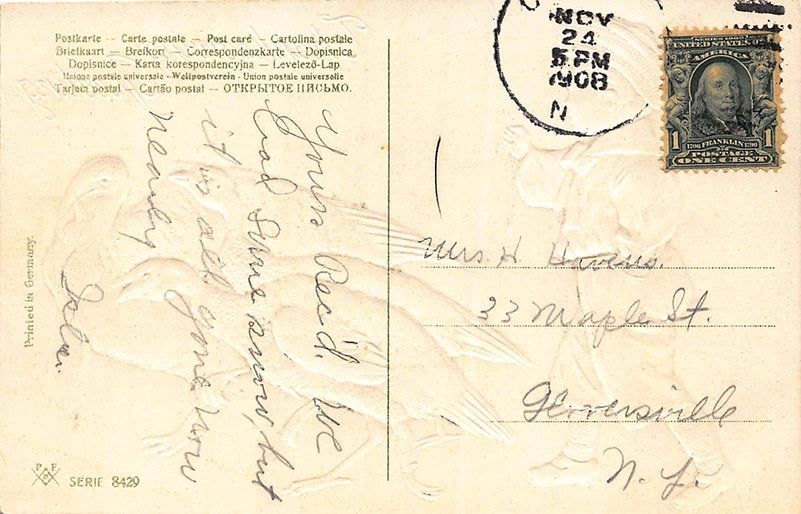 Postkarte — Carte postale — Post card — Cartolina postale
Briefkaart — Brefkort — Correspondenzkarte — Dopisnica
Dopisnice — Karta korespondencyjna — Levelező-Lap
Unione postale universale — Weltpostverein — Union postale universelle
Tarjeta postal — Cartão postal — ОТКРЫТОЕ ПИСЬМО.
NOV
24
5 PM
1908
N
SERIES 1902
UNITED STATES OF
AMERICA
1 1706 FRANKLIN 1790 1
POSTAGE
ONE CENT
Yours Rec'd. We
had some snow, but
it is all gone now
nearly
Mrs. H. Havens.
33 Maple St.
Gloversville
N. Y.
Printed in Germany.
P F
SERIE 8429